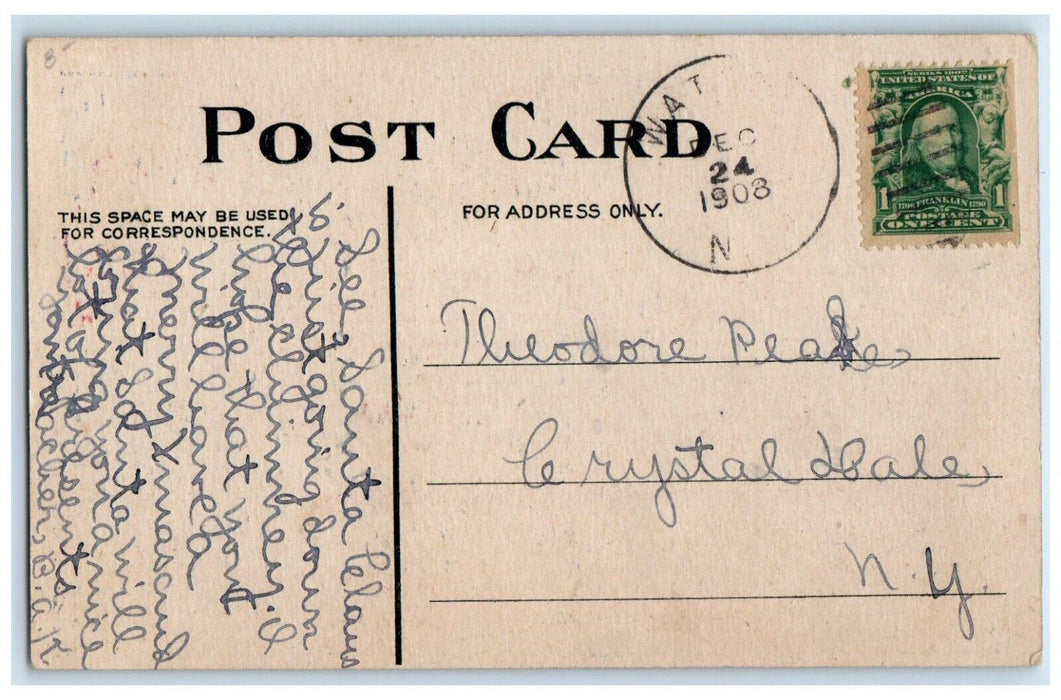 8-
POST CARD
THIS SPACE MAY BE USED
FOR CORRESPONDENCE.
FOR ADDRESS ONLY.
WAT
DEC
24
1908
N
SERIES 1902
UNITED STATES OF
AMERICA
1
1
1706 FRANKLIN 1790
POSTAGE
ONE CENT
Theodore Peake
Crystal Dale
N.Y.
See, Santa Claus
is just going down
the chimney. I
hope that you
will have a
merry Xmas and
that Santa will
bring you a nice
lot of presents
your teacher, B.A.K.